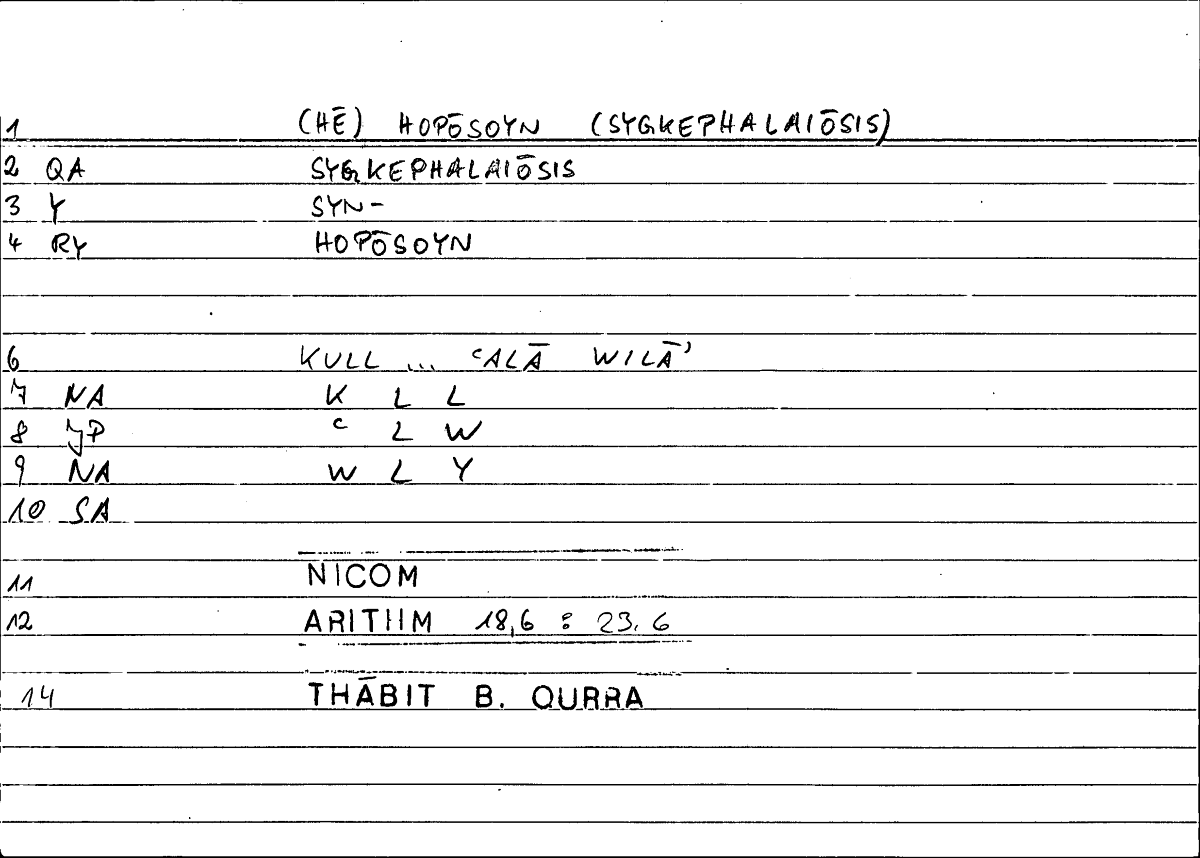 1 (HĒ) HOPŌSOYN (SYGKEPHALAIŌSIS)
2 QA SYGKEPHALAIŌSIS
3 Y SYN-
4 RY HOPŌSOYN
6 KULL ... ʿALĀ WILĀʾ
7 NA K L L
8 JP ʿ L W
9 NA W L Y
10 SA
11 NICOM
12 ARITHM 18,6 : 23.6
14 THĀBIT B. QURRA